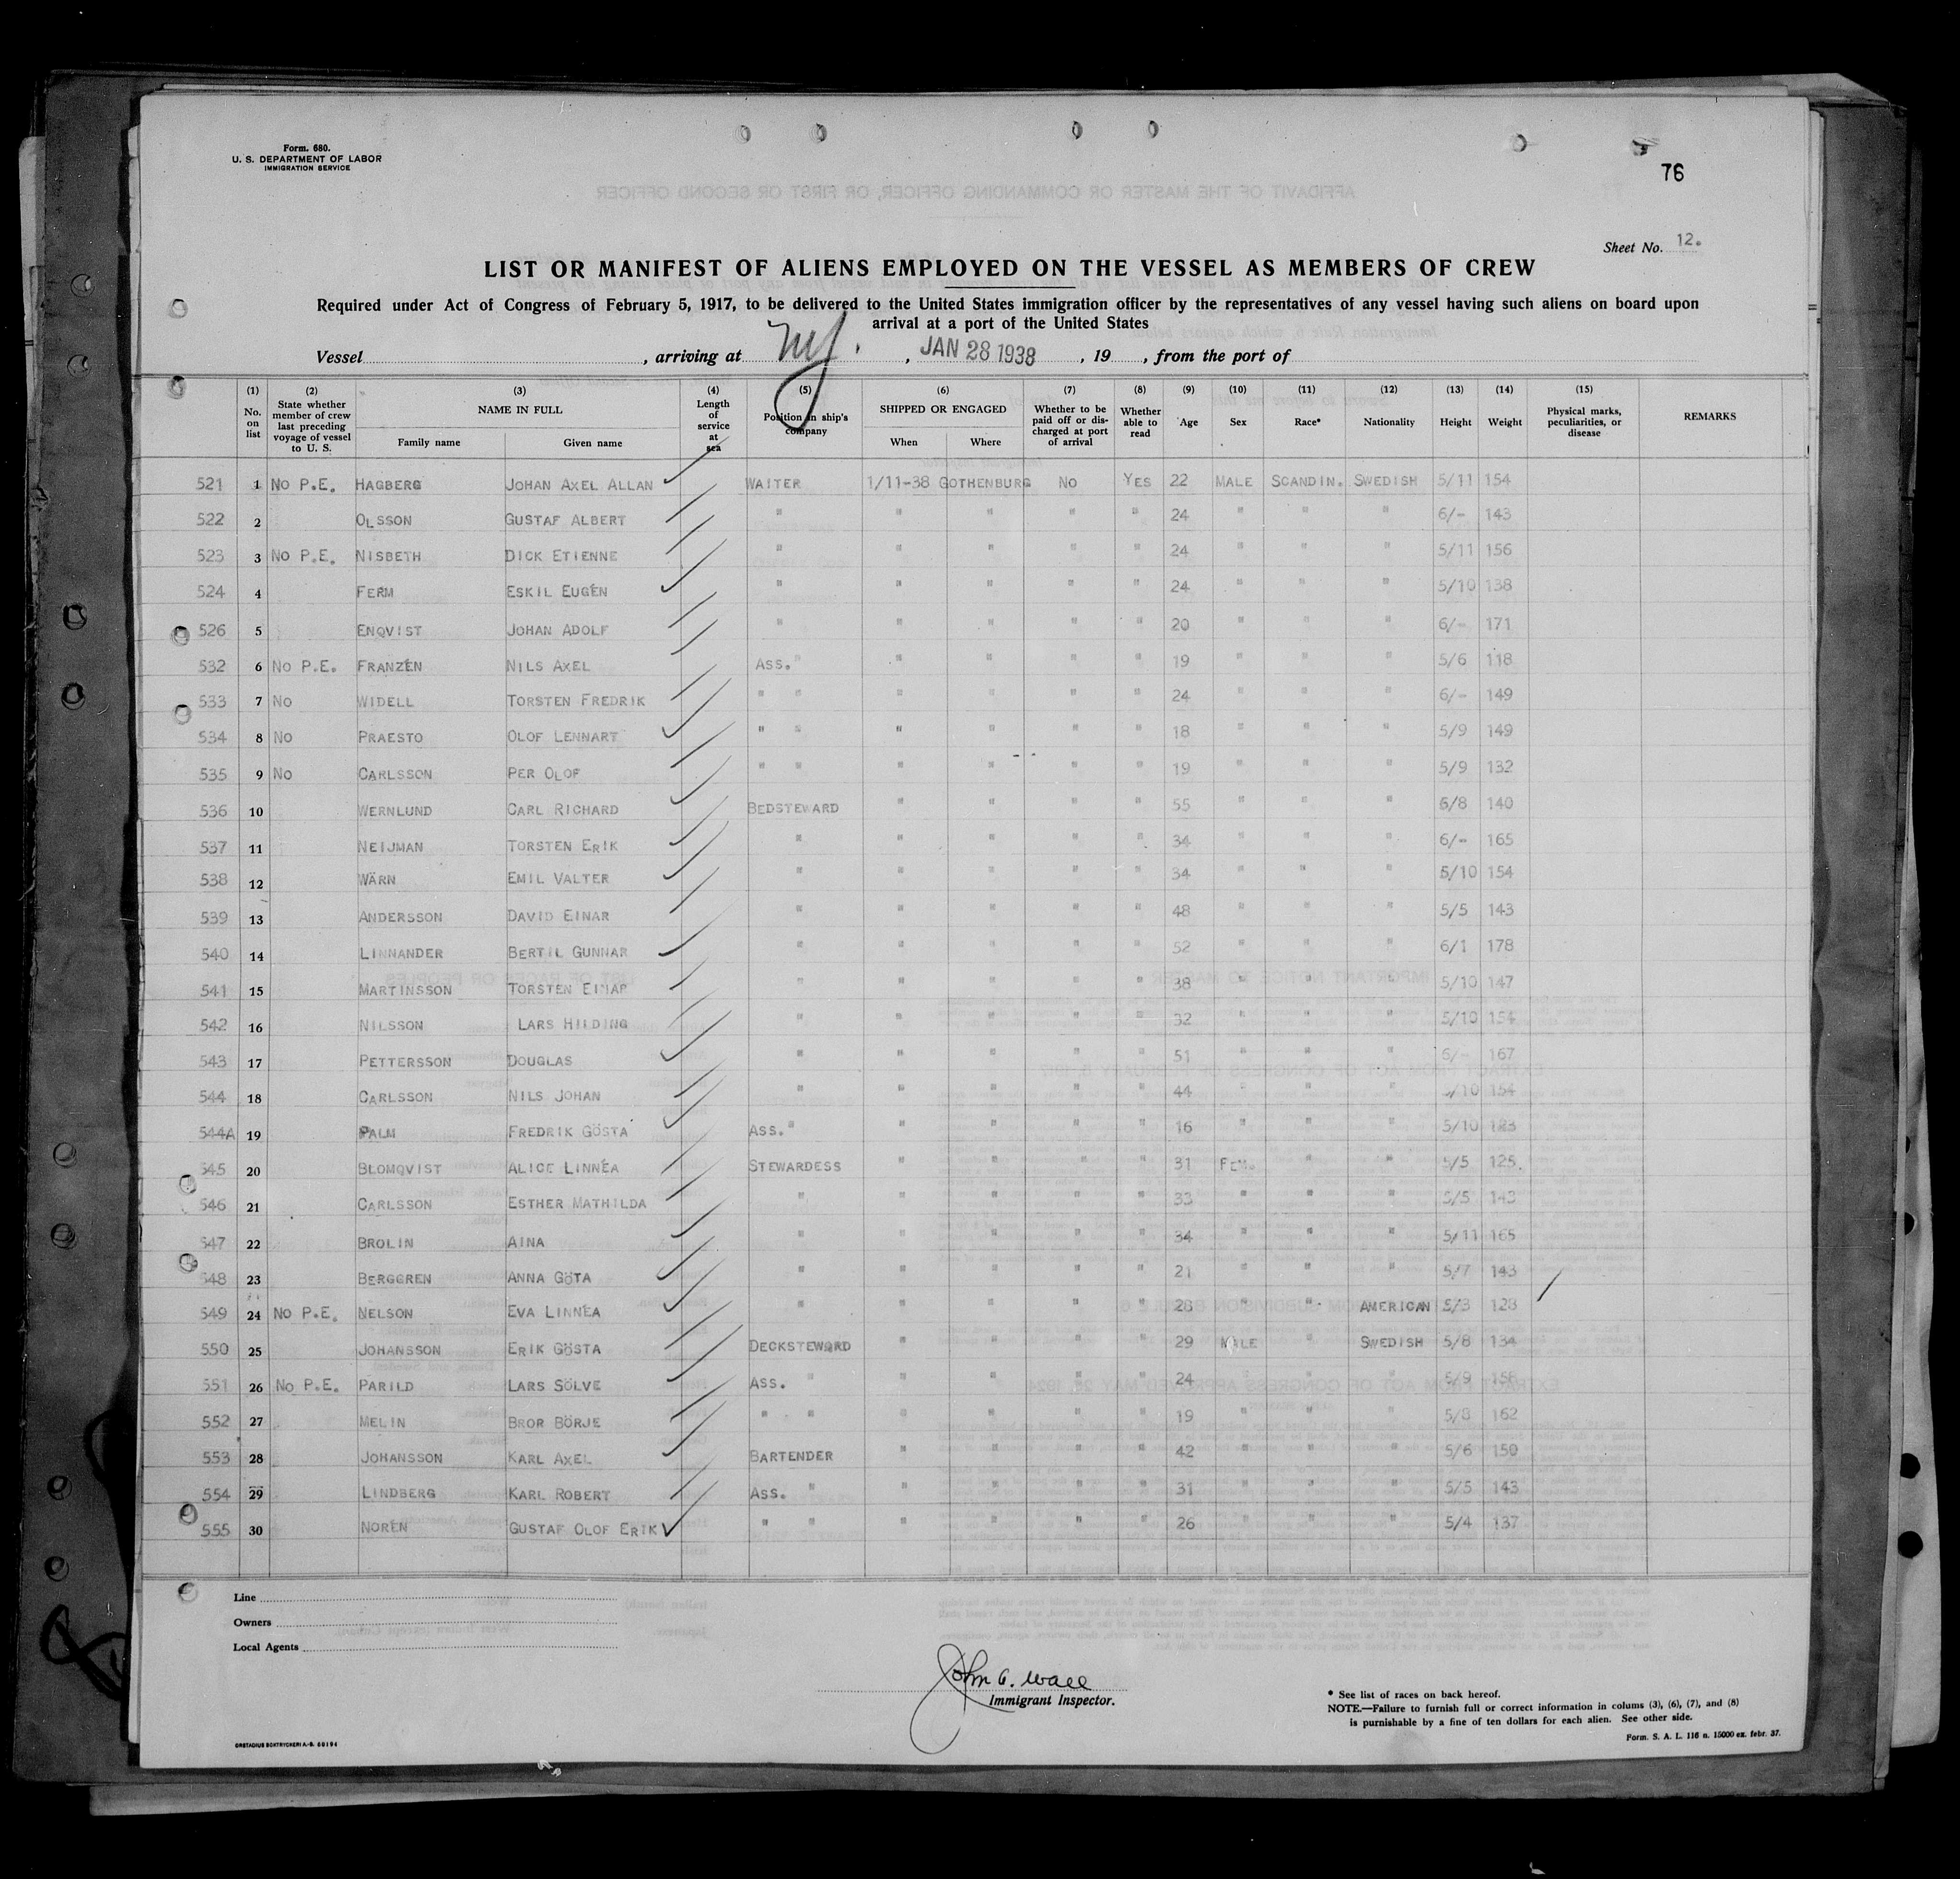 Form. 680.
U. S. DEPARTMENT OF LABOR
IMMIGRATION SERVICE
76
Sheet No. 12.
LIST OR MANIFEST OF ALIENS EMPLOYED ON THE VESSEL AS MEMBERS OF CREW
Required under Act of Congress of February 5, 1917, to be delivered to the United States immigration officer by the representatives of any vessel having such aliens on board upon
arrival at a port of the United States
Vessel , arriving at NY. , JAN 28 1938 , 19 , from the port of
(1) No. on list (2) State whether member of crew last preceding voyage of vessel to U. S. (3) NAME IN FULL Family name Given name (4) Length of service at sea (5) Position in ship's company (6) SHIPPED OR ENGAGED When Where (7) Whether to be paid off or discharged at port of arrival (8) Whether able to read (9) Age (10) Sex (11) Race* (12) Nationality (13) Height (14) Weight (15) Physical marks, peculiarities, or disease REMARKS
521 1 NO P.E. HAGBERG JOHAN AXEL ALLAN WAITER 1/11-38 GOTHENBURG NO YES 22 MALE SCANDIN. SWEDISH 5/11 154
522 2 OLSSON GUSTAF ALBERT " " " " " 24 " " " 6/- 143
523 3 NO P.E. NISBETH DICK ETIENNE " " " " " 24 " " " 5/11 156
524 4 FERM ESKIL EUGÉN " " " " " 24 " " " 5/10 138
526 5 ENQVIST JOHAN ADOLF " " " " " 20 " " " 6/- 171
532 6 NO P.E. FRANZÉN NILS AXEL ASS. " " " " " 19 " " " 5/6 118
533 7 NO WIDELL TORSTEN FREDRIK " " " " " " 24 " " " 6/- 149
534 8 NO PRAESTO OLOF LENNART " " " " " " 18 " " " 5/9 149
535 9 NO CARLSSON PER OLOF " " " " " " 19 " " " 5/9 132
536 10 WERNLUND CARL RICHARD BEDSTEWARD " " " " 55 " " " 6/8 140
537 11 NEIJMAN TORSTEN ERIK " " " " " 34 " " " 6/- 165
538 12 WÄRN EMIL VALTER " " " " " 34 " " " 5/10 154
539 13 ANDERSSON DAVID EINAR " " " " " 48 " " " 5/5 143
540 14 LINNANDER BERTIL GUNNAR " " " " " 52 " " " 6/1 178
541 15 MARTINSSON TORSTEN EINAR " " " " " 38 " " " 5/10 147
542 16 NILSSON LARS HILDING " " " " " 32 " " " 5/10 154
543 17 PETTERSSON DOUGLAS " " " " " 51 " " " 6/- 167
544 18 CARLSSON NILS JOHAN " " " " " 44 " " " /10 154
544A 19 PALM FREDRIK GÖSTA ASS. " " " " " 16 " " " 5/10 123
545 20 BLOMQVIST ALICE LINNÉA STEWARDESS " " " " 31 FEM. " " 5/5 125.
546 21 CARLSSON ESTHER MATHILDA " " " " " 33 " " " 5/5 143
547 22 BROLIN AINA " " " " " 34 " " " 5/11 165
548 23 BERGGREN ANNA GÖTA " " " " " 21 " " " 5/7 143
549 24 NO P.E. NELSON EVA LINNÉA " " " " " 28 " " AMERICAN 5/3 128
550 25 JOHANSSON ERIK GÖSTA DECKSTEWARD " " " " 29 MALE " SWEDISH 5/8 134
551 26 NO P.E. PARILD LARS SÖLVE ASS. " " " " " 24 " " " 5/9 156
552 27 MELIN BROR BÖRJE " " " " " " 19 " " " 5/8 162
553 28 JOHANSSON KARL AXEL BARTENDER " " " " 42 " " " 5/6 150
554 29 LINDBERG KARL ROBERT ASS. " " " " " 31 " " " 5/5 143
555 30 NORÉN GUSTAF OLOF ERIK " " " " " " 26 " " " 5/4 137
Line
Owners
Local Agents
John G. Wall
Immigrant Inspector.
* See list of races on back hereof.
NOTE.—Failure to furnish full or correct information in colums (3), (6), (7), and (8)
is punishable by a fine of ten dollars for each alien. See other side.
Form. S. A. L. 116 n. 15000 ex. febr. 37.